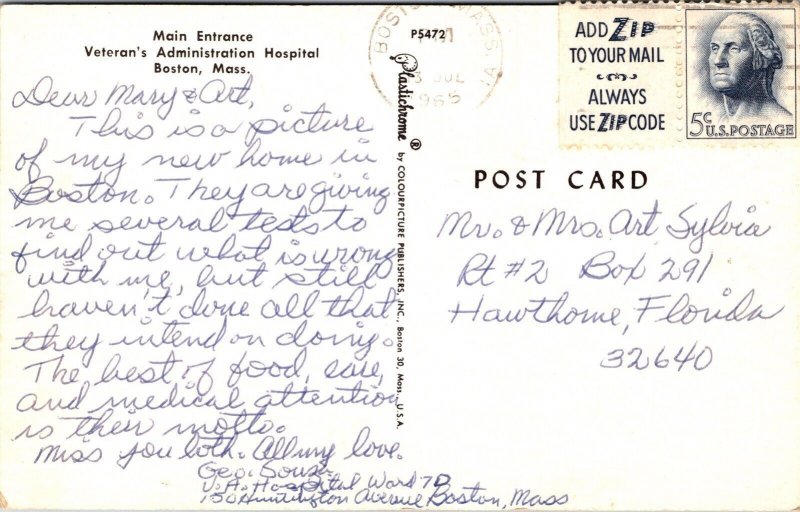 Main Entrance
Veteran's Administration Hospital
Boston, Mass.
Dear Mary & Art,
This is a picture
of my new home in
Boston. They are giving
me several tests to
find out what is wrong
with me, but still
haven't done all that
they intend on doing.
The best of food, care,
and medical attention
is their motto.
Miss you both. All my love.
Geo. Sousa
V.A. Hospital Ward 7D
150 Huntington Avenue Boston, Mass
P5472
Plastichrome ®
by COLOURPICTURE PUBLISHERS, INC., Boston 30, Mass., U.S.A.
BOSTON MASS.
JUL
1965
ADD ZIP
TO YOUR MAIL
ALWAYS
USE ZIP CODE
5c U.S. POSTAGE
POST CARD
Mr. & Mrs. Art Sylvia
Rt #2 Box 291
Hawthorne, Florida
32640